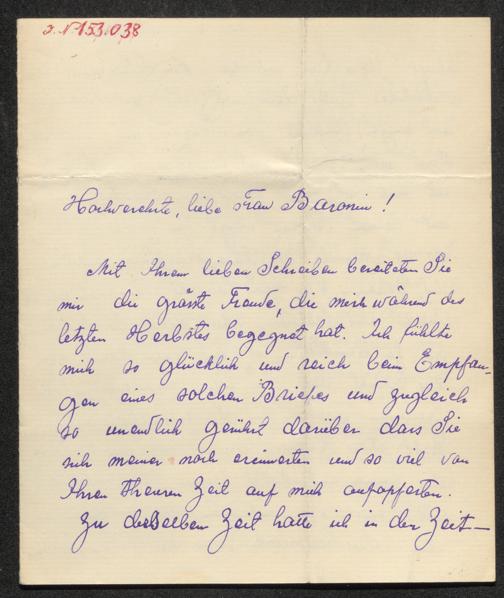 J. N. 153.038
Hochverehrte, liebe Frau Baronin!
Mit Ihrem lieben Schreiben bereiteten Sie
mir die grösste Freude, die mich während des
letzten Herbstes begegnet hat. Ich fühlte
mich so glücklich und reich beim Empfan-
gen eines solchen Briefes und zugleich
so unendlich gerührt darüber dass Sie
sich meiner noch erinnerten und so viel von
Ihren theuren Zeit auf mich aufopferten.
Zu derselben Zeit hatte ich in der Zeit-